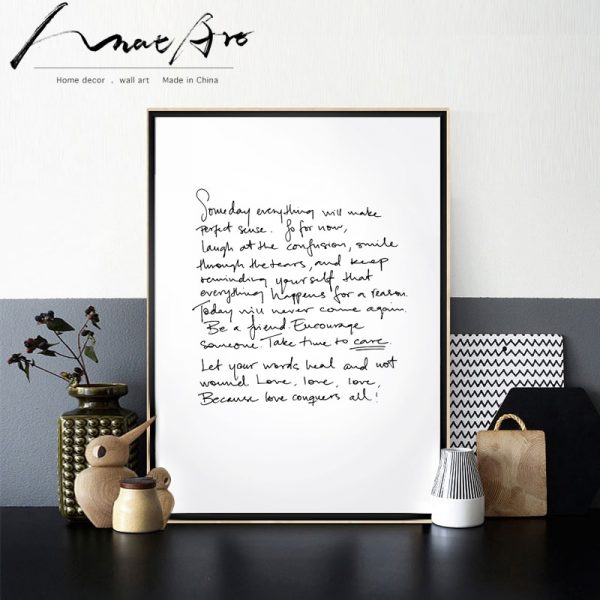 Art
Home decor . wall art Made in China
Someday everything will make
perfect sense. So for now,
laugh at the confusion, smile
through the tears, and keep
reminding yourself that
everything happens for a reason.
Today will never come again.
Be a friend. Encourage
someone. Take time to care.
Let your words heal and not
wound. Love, love, love,
Because love conquers all!